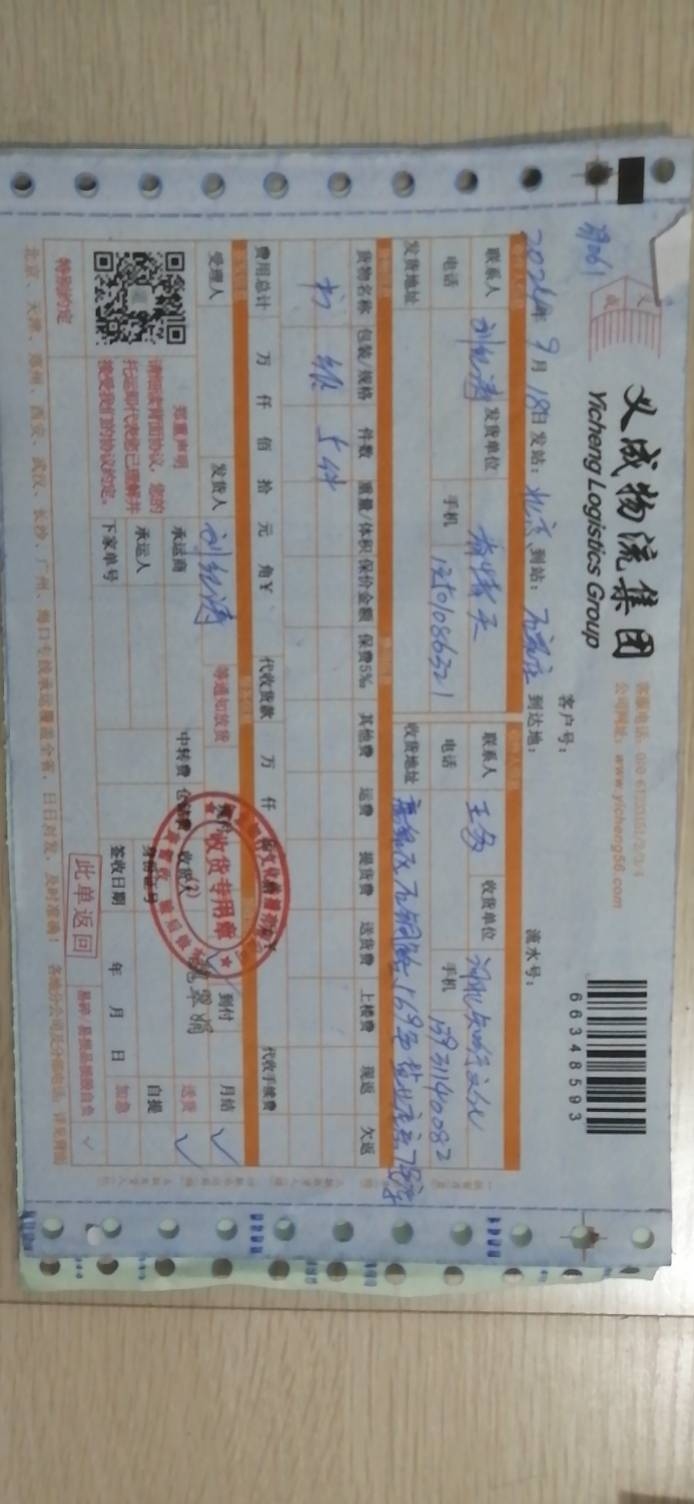 义成物流集团
Yicheng Logistics Group
公司网址：www.yicheng56.com
66348593
客户号：
流水号：
2024年 9月 18日 发站：北京 到站：石家庄 到达地：
联系人 刘纪涛 发货单位
联系人 收货单位
电话 手机
电话 手机 15931140082
发货地址
收货地址
货物名称 包装/规格 件数 重量/体积 保价金额 保费5‰ 其他费 运费 提货费 送货费 上楼费 现返 欠返
书 纸 5件
费用总计 万 仟 佰 拾 元 角¥ 代收货款 万 仟 代收手续费
受理人 发货人 刘纪涛 等通知放货 到付 月结 ✓
收货专用章
(2)
郑重声明
请细读背面协议，您的
托运即代表您已理解并
接受我们的协议约定。
承运商 中转费 收货人 送货 ✓
承运人 身份证号 自提
下家单号 签收日期 年 月 日 加急
特别约定 此单返回 易碎/易损品破损自负 ✓
北京、天津、郑州、西安、武汉、长沙、广州、海口专线承运覆盖全省，日日对发，及时准确！